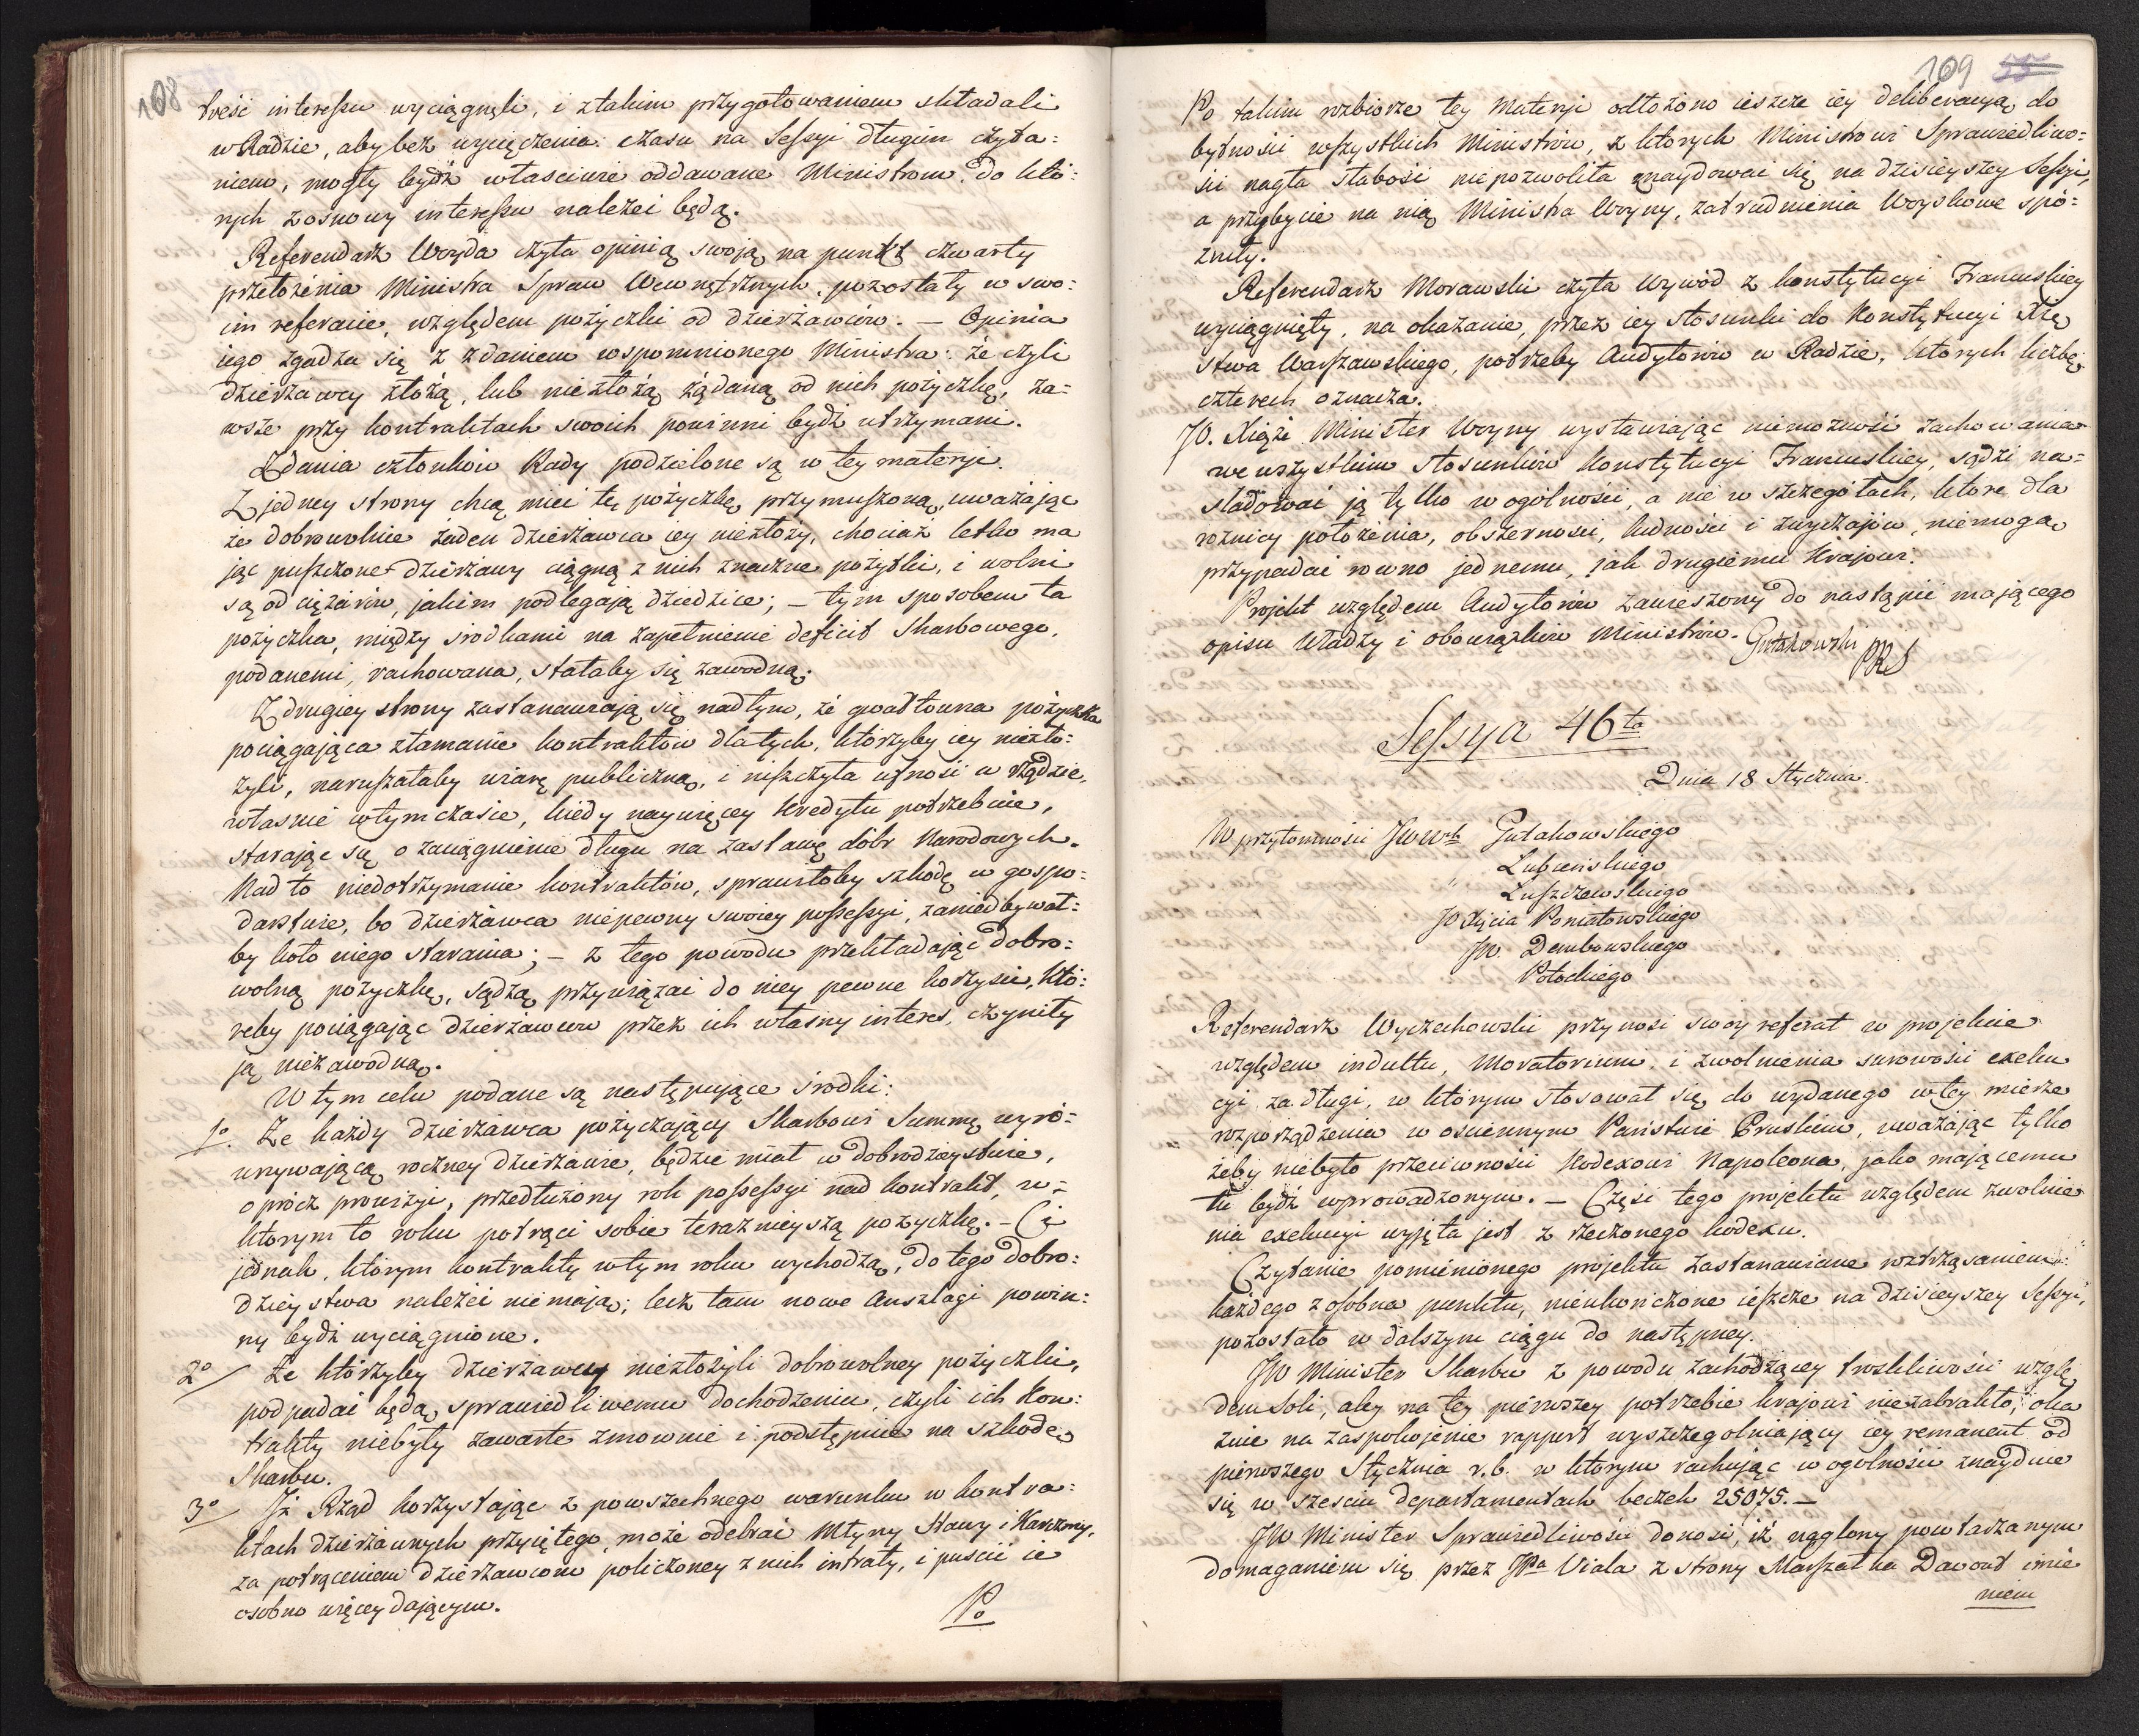 108
treść interessu wyciągnęli, i ztakim przygotowaniem składali
w Radzie, aby bez wycięczenia czasu na Sessyi długim czyta:
niem, mogły bydź właściwie oddawane Ministrom, do któ:
rych zosnowy interessu należeć będą.
Referendarz Woyda czyta opinią swoją na punkt czwarty
przełożenia Ministra Spraw Wewnętrznych, pozostały w swo:
im referacie, względem pożyczki od dzierżawców. — Opinia
iego zgadza się z zdaniem wspomnionego Ministra: że czyli
dzierżawcy złożą, lub niezłożą żądaną od nich pożyczkę, za=
wsze przy kontraktach swoich powinni bydź utrzymani.
Zdania członków Rady podzielone są w tey materyi.
Z jedney strony chcą mieć tę pożyczkę przymuszoną, uważając
że dobrowolnie żaden dzierżawca iey niezłoży, chociaż letko ma
jąc puszczone dzierżawy ciągną z nich znaczne pożytki, i wolni
są od ciężarów, jakim podlegają dziedzice; — tym sposobem ta
pożyczka, między środkami na zapełnienie deficit Skarbowego,
podanemi, rachowana, stałaby się zawodną.
Z drugiey strony zastanawiają się nadtym, że gwałtowna pożyczka
pociągająca złamanie kontraktów dlatych, którzyby iey niezło:
żyli, naruszałaby wiarę publiczną, i niszczyła ufność w rządzie,
własnie wtymczasie, kiedy naywięcey kredytu potrzebuie,
starając się o zaciągnienie długu na zastawę dóbr Narodowych.
Nad to niedotrzymanie kontraktów, sprawiłoby szkodę w gospo:
darstwie, bo dzierżawca niepewny swoiey possessyi, zaniedbywał:
by koło niego starania; — z tego powodu przekładając dobro:
wolną pożyczkę, sądzą przywiązać do niey pewne korzyści, któ:
reby pociągając dzierżawców przez ich własny interes, czyniły
ją niezawodną.
W tym celu podane są następujące środki:
1o. Że każdy dzierżawca pożyczający Skarbowi Summę wyró=
wnywającą roczney dzierżawie, będzie miał w dobrodzieystwie,
oprócz prowizyi, przedłużony rok possessyi nad kontrakt, w=
którym to roku potrąci sobie teraznieyszą pożyczkę. — Ci
jednak, którym kontrakty wtym roku wychodzą, do tego dobro:
dzieystwa należeć niemają; lecz tam nowe Anszlagi powin:
ny bydź wyciągnione.
2o Że którzyby dzierżawcy niezłożyli dobrowolney pożyczki,
podpadać będą sprawiedliwemu dochodzeniu, czyli ich kon:
trakty niebyły zawarte zmownie i podstępnie na szkodę
Skarbu.
3o Iż Rząd korzystając z powszechnego warunku w kontra:
ktach dzierżawnych przyiętego, może odebrać Młyny Stawy i Karczmy,
za potrąceniem dzierżawcom policzoney z nich intraty, i puścić ie
osobno więcey dającym.
Po
109 55
Po takim rozbiorze tey Materyi odłożono ieszcze iey deliberacyą do
bytności wszystkich Ministrów, z których Ministrowi Sprawiedliwo:
ści nagła słabość niepozwoliła znaydować się na dzisieyszey Sessyi,
a przybycie na nią Ministra Woyny, zatrudnienia Woyskowe spó:
źniły.
Referendarz Morawski czyta Wywód z konstytucyi Francuskiey
wyciągnięty, na okazanie, przez iey stosunki do Konstytucyi Xię
stwa Warszawskiego, potrzeby Audytorów w Radzie, których liczbę
czterech oznacza.
JO. Xiąże Minister Woyny wystawiając niemożność zachowania
we wszystkim stosunków Konstytucyi Francuskiey, sądzi na=
śladować ją tylko w ogólności, a nie w szczegółach, które dla
rożnicy położenia, obszerności, ludności i zwyczajów, niemogą
przypadać rowno jednemu, jak drugiemu Krajowi.
Projekt względem Audytorów zawieszony do nastąpić mającego
opisu Władzy i obowiązków Ministrów. Gutakowski PRS
Sessya 46ta
Dnia 18 Stycznia
W przytomności JWWch Gutakowskiego
" Łubieńskiego
Łuszczewskiego
JO Xięcia Poniatowskiego
JW. Dembowskiego
Potockiego
Referendarz Wyczechowski przynosi swóy referat w projekcie
względem indultu, Moratorium i zwolnienia surowości exeku
cyi za długi, w którym stosował się do wydanego wtey mierze
rozporządzenia w ościennym Państwie Pruskim, uważając tylko
żeby niebyło przeciwności Kodexowi Napoleona, jako mającemu
tu bydź wprowadzonym. — Część tego projektu względem zwolnie
nia exekucyi wyjęta jest z rzeczonego kodexu.
Czytanie pomienionego projektu zastanawiane roztrząsaniem
każdego z osobna punktu, nieukończone ieszcze na dzisieyszey Sessyi,
pozostało w dalszym ciągu do następney.
JW Minister Skarbu z powodu zachodzącey troskliwości wzglę
dem Soli, aby na tey pierwszey potrzebie krajowi niezabrakło, oka
zuie na zaspokojenie rapport wyszczególniający iey remanent od
pierwszego Stycznia r. b. w którym rachując w ogólności znayduie
się w sześciu departamentach beczek 25075. —
JW Minister Sprawiedliwości donosi, iż naglony powtarzanym
domaganiem się przez JPa Viala z strony Marszałka Davout imie
niem